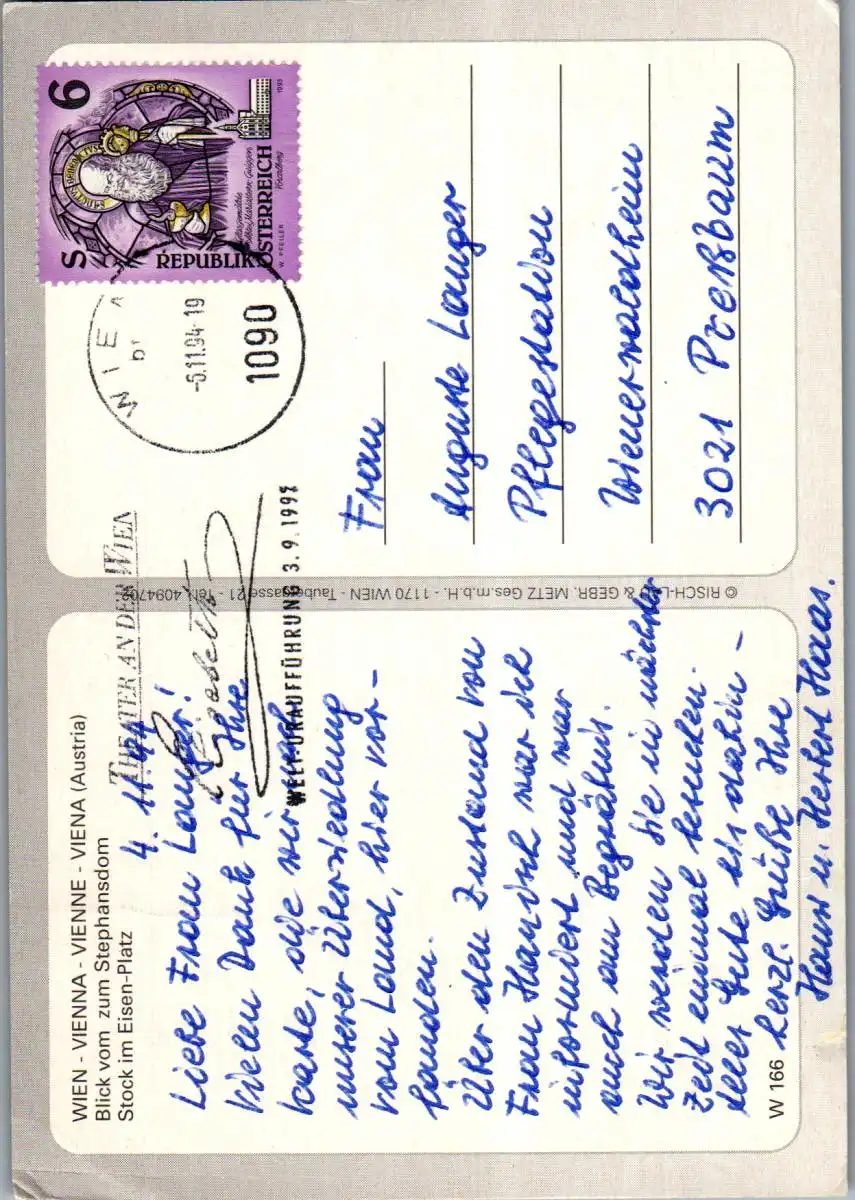 WIEN - VIENNA - VIENNE - VIENA (Austria)
Blick vom zum Stephansdom
Stock im Eisen-Platz
4. 11. 94
Liebe Frau Langer!
Vielen Dank für Ihre
Karte, die wir nach
unserer Übersiedlung
vom Land, hier vor-
fanden.
Über den Zustand von
Frau war ich
informiert und war
auch am Begräbnis.
Wir werden Sie in nächster
Zeit einmal besuchen.
Alles Gute bis dahin –
herzl. Grüße Ihre
Hans u. Herbert Haas.
W 166
© RISCH-LAU & GEBR. METZ Ges.m.b.H. - 1170 WIEN - Taubergasse 21 - Tel. 4094702
THEATER AN DER WIEN
Elisabeth
WELT-URAUFFÜHRUNG 3.9.1992
WIEN
-5.11.94-19
1090
S 6
SANCTUS BENEDICTUS
REPUBLIK ÖSTERREICH
W. PFEILER
1993
Frau
Auguste Langer
Pflegestation
Wienerwaldheim
3021 Preßbaum